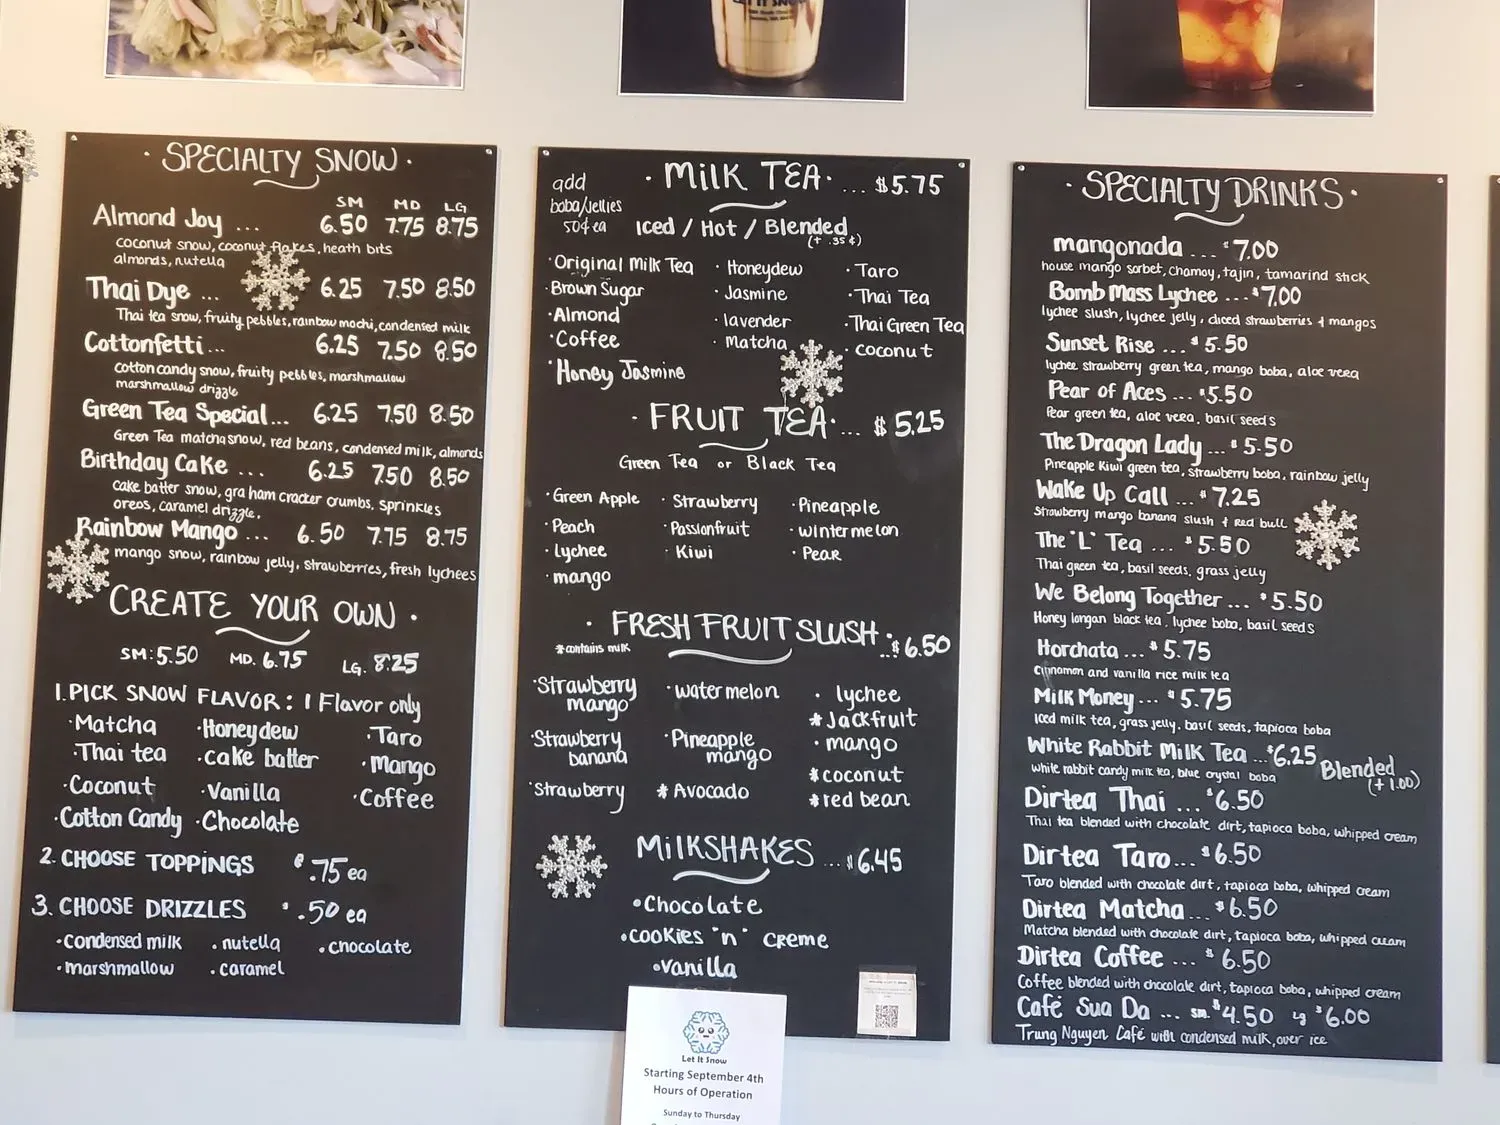 LET IT SNOW
· SPECIALTY SNOW ·
SM MD LG
Almond Joy ... 6.50 7.75 8.75
coconut snow, coconut flakes, heath bits
almonds, nutella
Thai Dye ... 6.25 7.50 8.50
Thai tea snow, fruity pebbles, rainbow mochi, condensed milk
Cottonfetti ... 6.25 7.50 8.50
cotton candy snow, fruity pebbles, marshmallow
marshmallow drizzle
Green Tea Special... 6.25 7.50 8.50
Green Tea matcha snow, red beans, condensed milk, almonds
Birthday Cake ... 6.25 7.50 8.50
cake batter snow, graham cracker crumbs, sprinkles
oreos, caramel drizzle.
Rainbow Mango ... 6.50 7.75 8.75
mango snow, rainbow jelly, strawberries, fresh lychees
CREATE YOUR OWN ·
SM: 5.50 MD. 6.75 LG. 8.25
1. PICK SNOW FLAVOR: 1 Flavor only
· Matcha · Honeydew · Taro
· Thai tea · cake batter · Mango
· Coconut · Vanilla · Coffee
· Cotton Candy · Chocolate
2. CHOOSE TOPPINGS $.75 ea
3. CHOOSE DRIZZLES $.50 ea
· condensed milk · nutella · chocolate
· marshmallow · caramel
add
boba/jellies
50¢ ea
· MILK TEA · ... $5.75
Iced / Hot / Blended
(+ .35¢)
· Original Milk Tea · Honeydew · Taro
· Brown Sugar · Jasmine · Thai Tea
· Almond · lavender · Thai Green Tea
· Coffee · Matcha · coconut
· Honey Jasmine
· FRUIT TEA · ... $5.25
Green Tea or Black Tea
· Green Apple · Strawberry · Pineapple
· Peach · Passionfruit · wintermelon
· lychee · Kiwi · Pear
· mango
· FRESH FRUIT SLUSH · ..$6.50
*contains milk
· Strawberry mango · watermelon · lychee
* Jackfruit
· Strawberry banana · Pineapple mango · mango
* coconut
· Strawberry * Avocado * red bean
MILKSHAKES ... $6.45
· Chocolate
· cookies "n" creme
· vanilla
Let It Snow
Starting September 4th
Hours of Operation
Sunday to Thursday
· SPECIALTY DRINKS ·
mangonada ... $7.00
house mango sorbet, chamoy, tajin, tamarind stick
Bomb Mass Lychee ... $7.00
lychee slush, lychee jelly, diced strawberries + mangos
Sunset Rise ... $5.50
lychee strawberry green tea, mango boba, aloe vera
Pear of Aces ... $5.50
Pear green tea, aloe vera, basil seeds
The Dragon Lady ... $5.50
Pineapple Kiwi green tea, strawberry boba, rainbow jelly
Wake Up Call ... $7.25
Strawberry mango banana slush + Red bull
The "L" Tea ... $5.50
Thai green tea, basil seeds, grass jelly
We Belong Together ... $5.50
Honey longan black tea, lychee boba, basil seeds
Horchata ... $5.75
cinnamon and vanilla rice milk tea
Milk Money ... $5.75
Iced milk tea, grass jelly, basil seeds, tapioca boba
White Rabbit Milk Tea ... $6.25 Blended
(+1.00)
white rabbit candy milk tea, blue crystal boba
Dirtea Thai ... $6.50
Thai tea blended with chocolate dirt, tapioca boba, whipped cream
Dirtea Taro... $6.50
Taro blended with chocolate dirt, tapioca boba, whipped cream
Dirtea Matcha... $6.50
Matcha blended with chocolate dirt, tapioca boba, whipped cream
Dirtea Coffee ... $6.50
Coffee blended with chocolate dirt, tapioca boba, whipped cream
Café Sua Da ... sm. $4.50 lg $6.00
Trung Nguyen Café with condensed milk, over ice